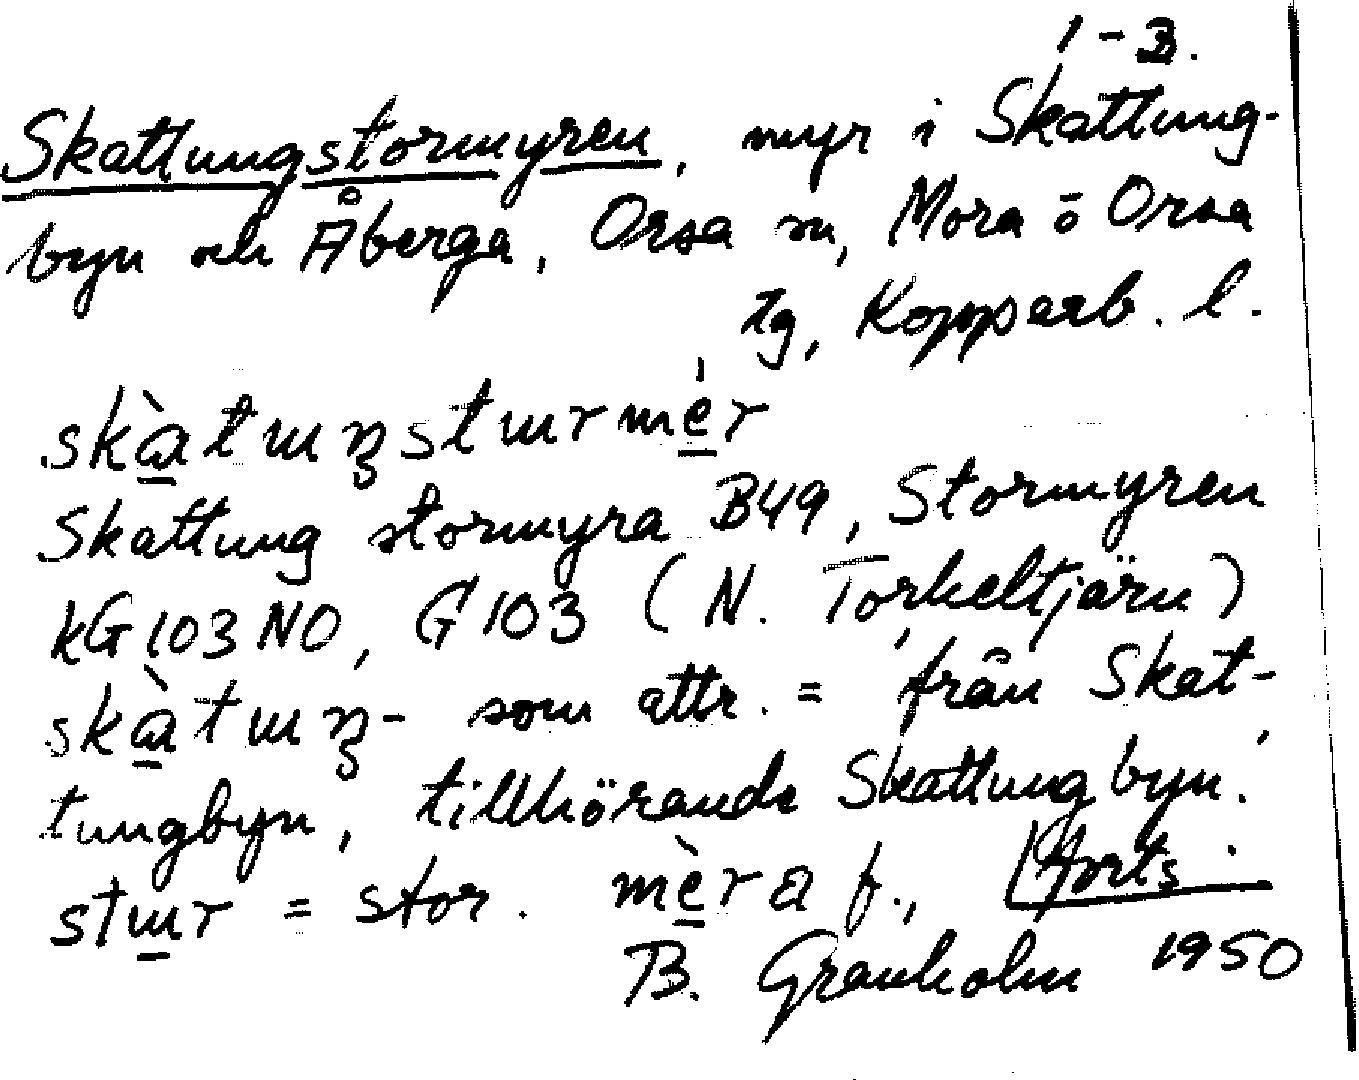 1-3.
Skattungstormyren, myr i Skattung-
byn och Åberga, Orsa sn, Mora o Orsa
tg, Kopparb. l.
skàtɯŋstɯrmér
Skattung stormyra B49, Stormyren
kG103NO, G103 (N. Torkeltjärn)
skàtɯŋ- som attr. = från Skat-
tungbyn, tillhörande Skattungbyn.
stɯr = stor. mèra f., Forts.
B. Granholm 1950